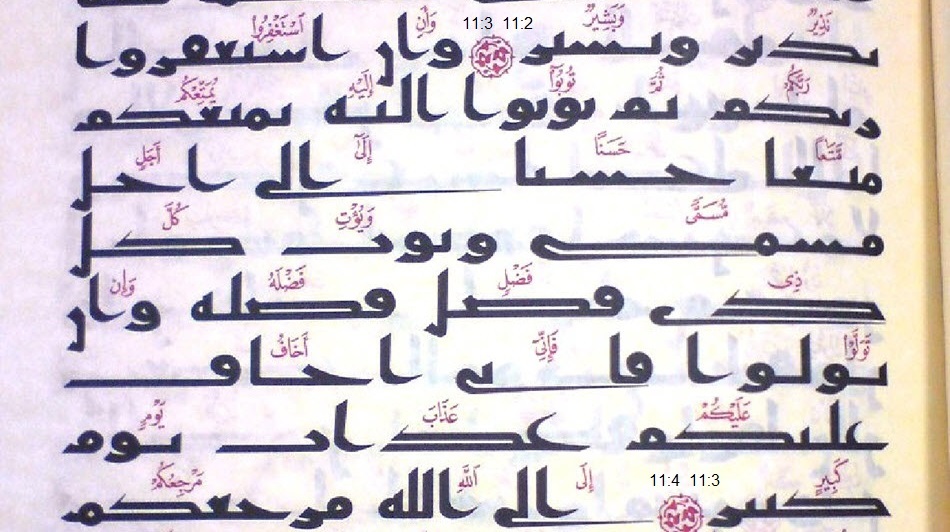 نَذِيرٌ وَبَشِيرٌ 11:2 11:3 وَأَنِ ٱسْتَغْفِرُوا۟
نذير وبشير وان استغفروا
رَبَّكُمْ ثُمَّ تُوبُوٓا۟ إِلَيْهِ يُمَتِّعْكُم
ربكم ثم توبوا اليه يمتعكم
مَّتَٰعًا حَسَنًا إِلَىٰٓ أَجَلٍ
متعا حسنا الى اجل
مُّسَمًّى وَيُؤْتِ كُلَّ
مسمى ويوت كل
ذِى فَضْلٍ فَضْلَهُۥ وَإِن
ذى فضل فضله وان
تَوَلَّوْا۟ فَإِنِّىٓ أَخَافُ
تولوا فانى اخاف
عَلَيْكُمْ عَذَابَ يَوْمٍ
عليكم عذاب يوم
كَبِيرٍ 11:3 11:4 إِلَى ٱللَّهِ مَرْجِعُكُمْ
كبير الى الله مرجعكم